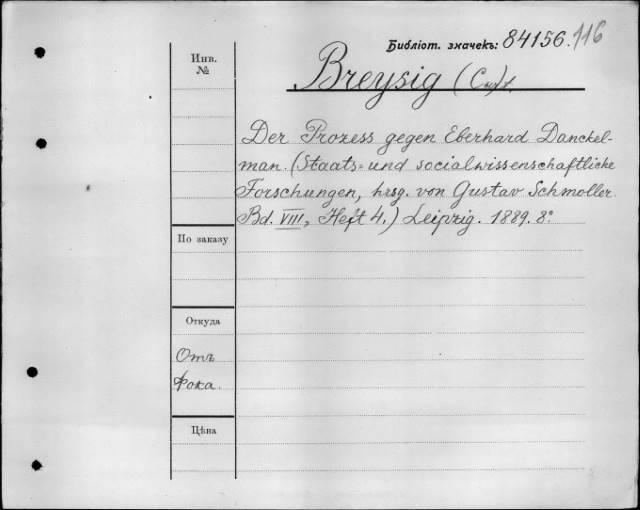 Библіот. значекъ: 84156. 116
Инв. №
Breysig (Curt).
Der Prozess gegen Eberhard Danckel-
man. (Staats= und socialwissenschaftliche
Forschungen, hrsg. von Gustav Schmoller.
Bd. VIII, Heft 4.) Leipzig. 1889. 8°.
По заказу
Откуда
Отъ
Фока.
Цѣна